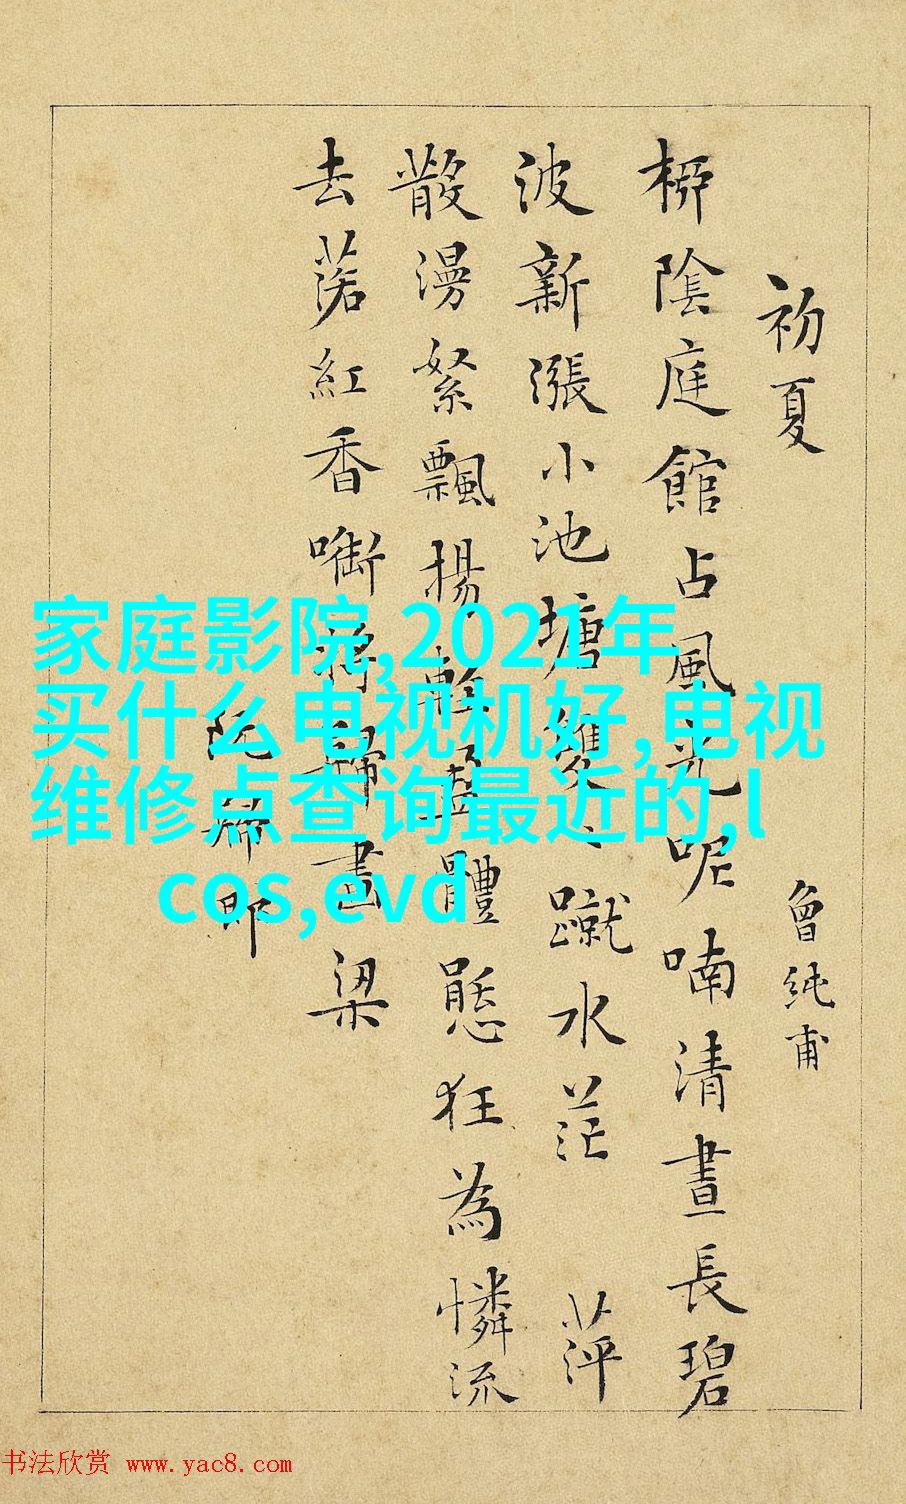 初夏 曾純甫
栁陰庭館占風光呢喃清晝長碧
波新漲小池塘雙〻蹴水茫 萍
散漫絮飄揚輕盈體態狂為憐流
去落紅香啣將歸畫梁
阮歸郎
家庭影院,2021年
买什么电视机好,电视
维修点查询最近的,l
cos,evd
书法欣赏 www.yac8.com